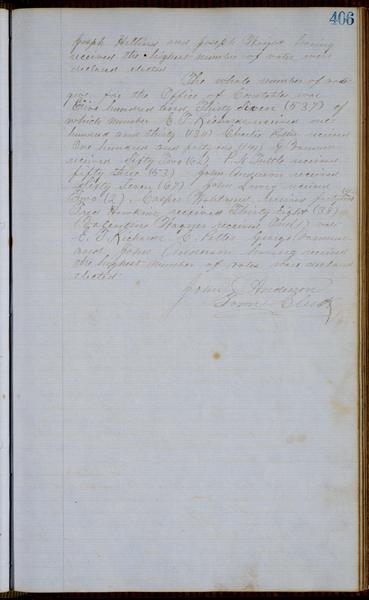 406
Joseph and Joseph having
received the highest number of votes were
declared elected
The whole number of votes
for the Office of Constable was
Five hundred and Thirty Seven (537) of
which number E. T. received one
hundred and thirty (130) Charles received
One hundred and forty one (141) G
received Sixty Two (62) P. M. Tuttle received
fifty three (53) John Anderson received
Sixty Seven (67) John Lowry received
Two (2) Casper received
Hawkins received Thirty Eight (38)
Valentine Wagner received One (1) vote
E. T. C. George
and John Anderson having received
the highest number of votes were declared
elected
John Anderson
Town Clerk